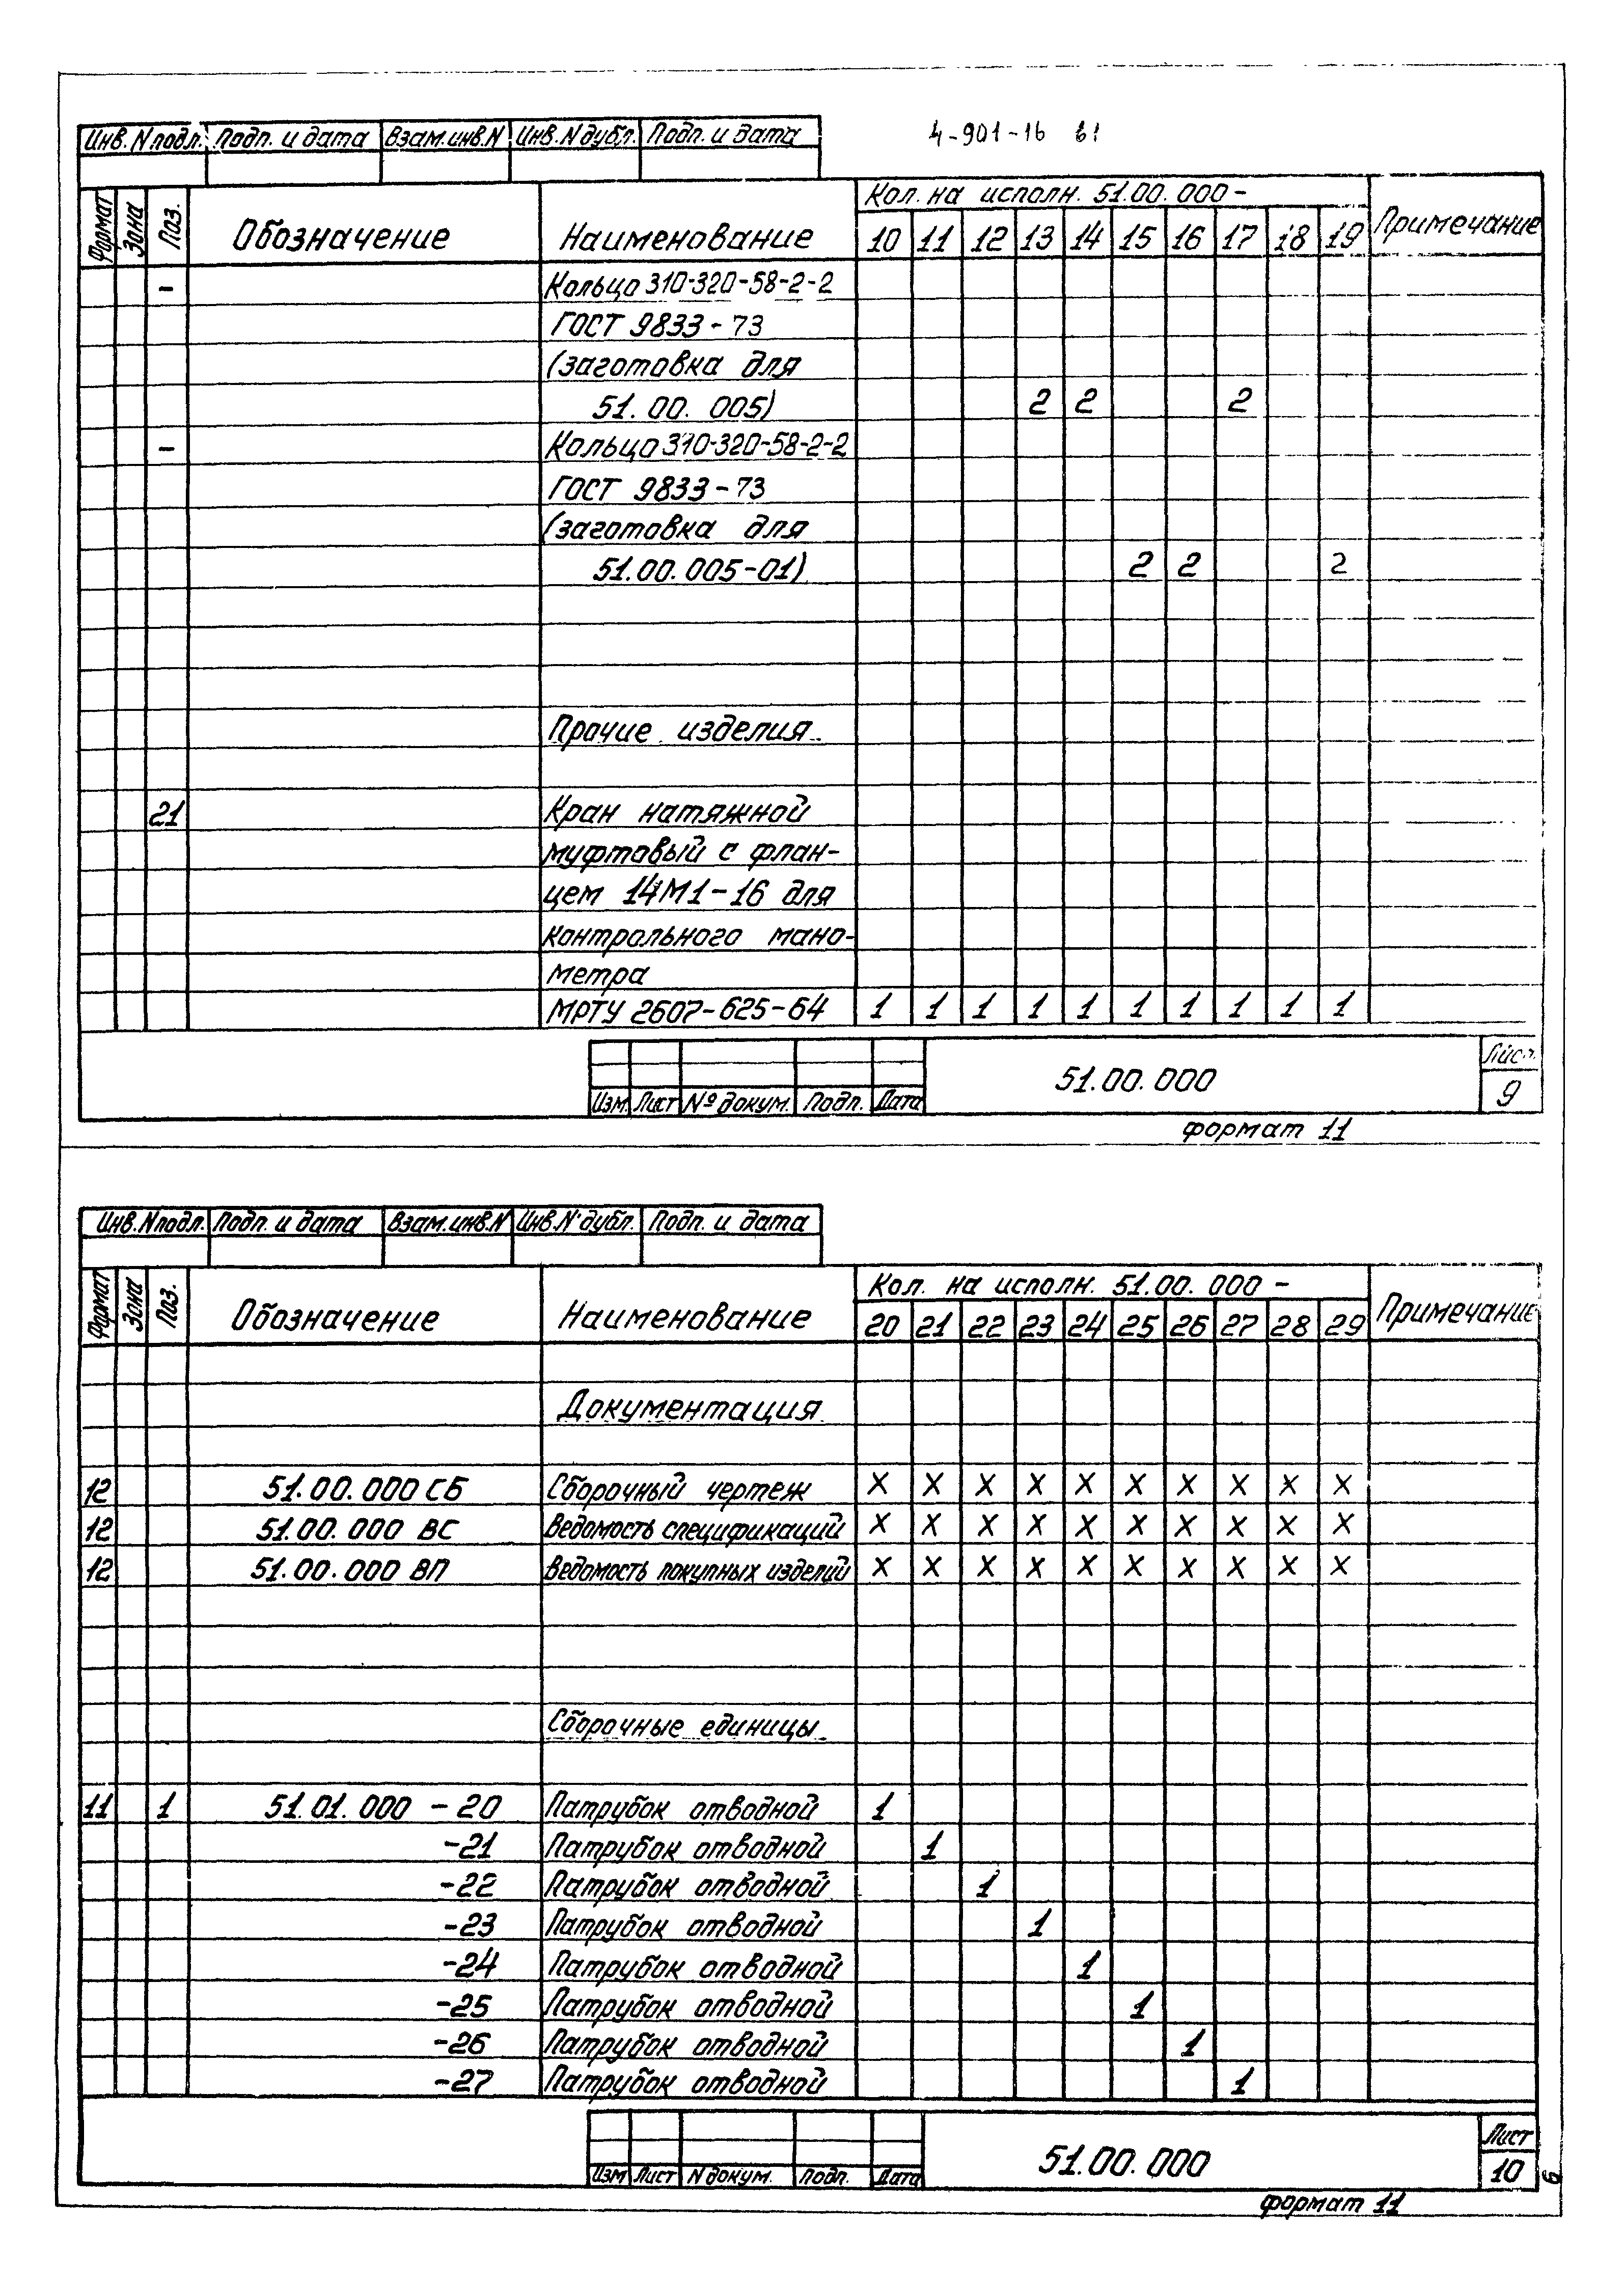 4-901-16 в1
Инв. N подл. Подп. и дата Взам. инв. N Инв. N дубл. Подп. и дата
Формат Зона Поз. Обозначение Наименование Кол. на исполн. 51.00.000 - Примечание
10 11 12 13 14 15 16 17 18 19
- Кольцо 310-320-58-2-2
ГОСТ 9833-73
(заготовка для
51.00.005) 2 2 2
- Кольцо 310-320-58-2-2
ГОСТ 9833-73
(заготовка для
51.00.005-01) 2 2 2
Прочие изделия
21 Кран натяжной
муфтовый с флан-
цем 14М1-16 для
контрольного мано-
метра
МРТУ 2607-625-64 1 1 1 1 1 1 1 1 1 1
Изм. Лист № докум. Подп. Дата 51.00.000 Лист 9
формат 11
Инв. N подл. Подп. и дата Взам. инв. N Инв. N дубл. Подп. и дата
Формат Зона Поз. Обозначение Наименование Кол. на исполн. 51.00.000 - Примечание
20 21 22 23 24 25 26 27 28 29
Документация
12 51.00.000 СБ Сборочный чертеж X X X X X X X X X X
12 51.00.000 ВС Ведомость спецификаций X X X X X X X X X X
12 51.00.000 ВП Ведомость покупных изделий X X X X X X X X X X
Сборочные единицы
11 1 51.01.000 - 20 Патрубок отводной 1
-21 Патрубок отводной 1
-22 Патрубок отводной 1
-23 Патрубок отводной 1
-24 Патрубок отводной 1
-25 Патрубок отводной 1
-26 Патрубок отводной 1
-27 Патрубок отводной 1
Изм Лист N докум. Подп. Дата 51.00.000 Лист 10
формат 11